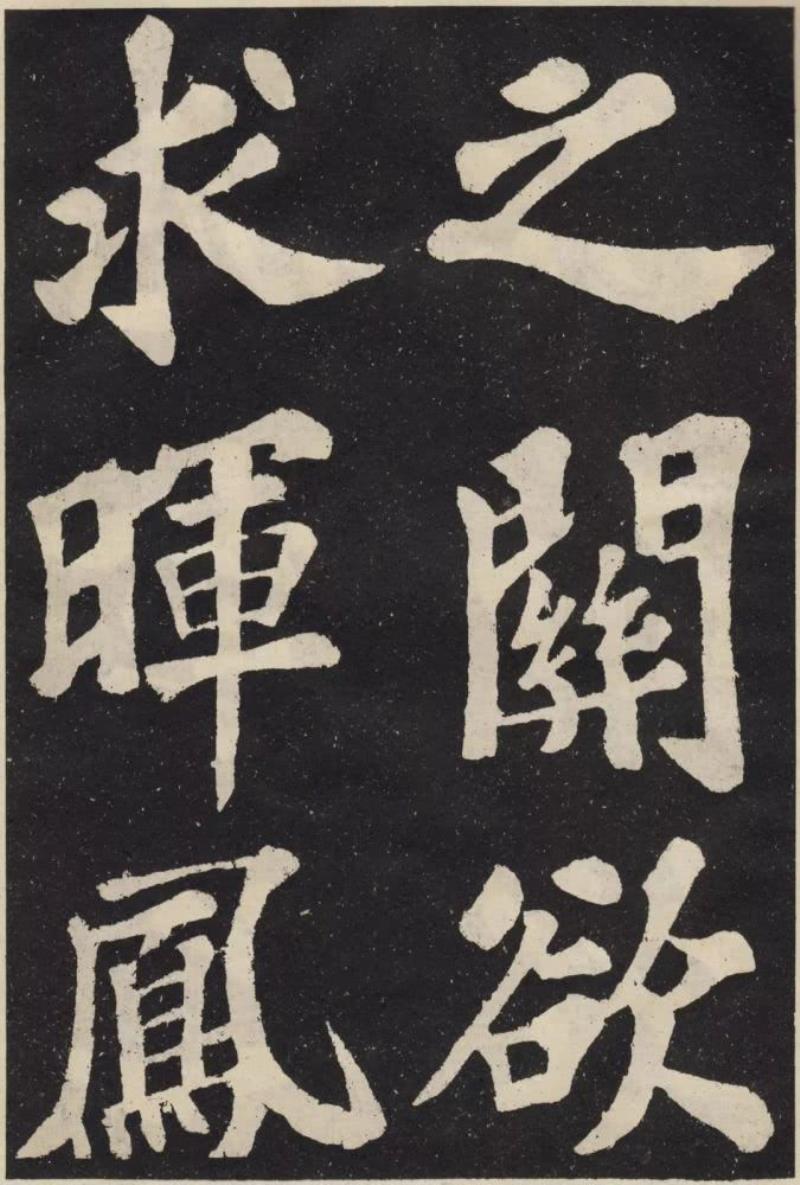 之關欲
求暉鳳